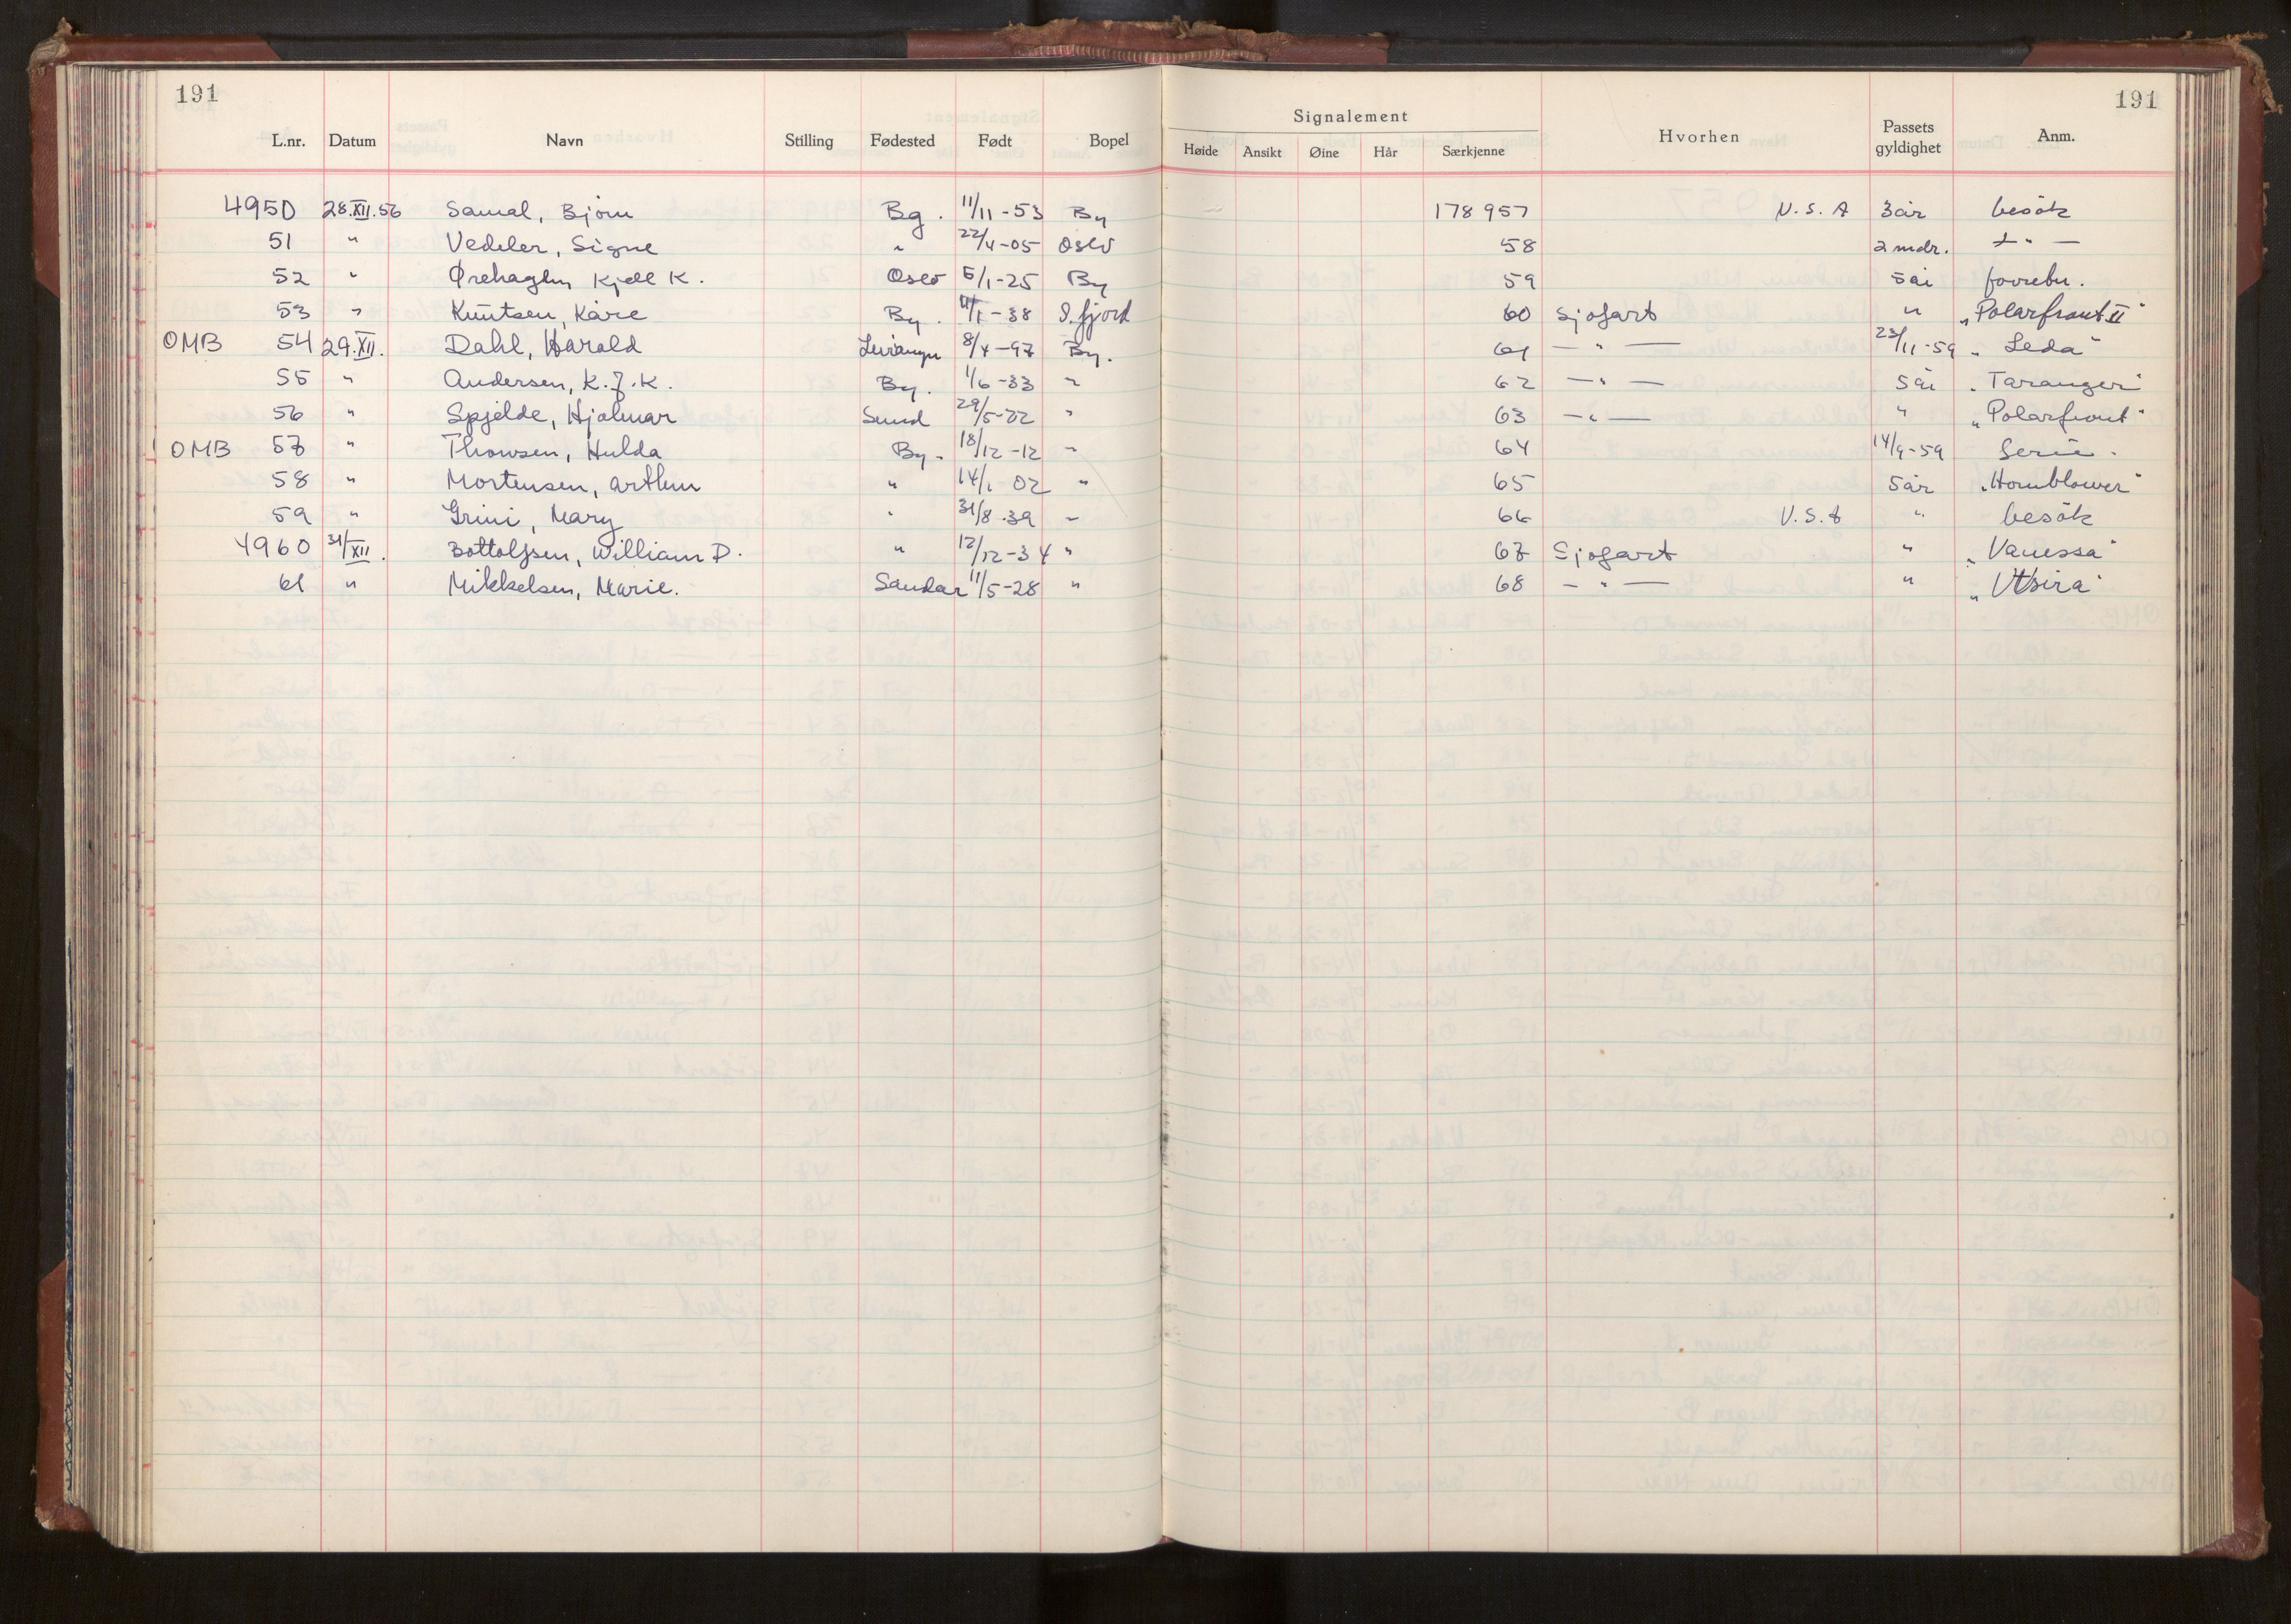 191 191
Signalement
L.nr. Datum Navn Stilling Fødested Født Bopel Høide Ansikt Øine Hår Særkjenne Hvorhen Passets gyldighet Anm.
4950 28.XII.56 Samal, Bjørn Bg. 11/11-53 Bg 178957 U.S.A 3år besøk
51 " Vedeler, Signe " 22/4-05 Oslo 58 2 mdr. — " —
52 " Ørehagen, Kjell K. Oslo 5/1-25 Bg 59 5år
53 " Knutsen, Kåre Bg. /1-38 S.fjord 60 Sjøfart " "Polarfront II"
OMB 54 29.XII. Dahl, Harald Levanger 8/4-97 Bg. 61 — " — 23/11-59 "Leda"
55 " Andersen, K.J.K. Bg. 1/6-33 " 62 — " — 5år "Taranger"
56 " Spjelde, Hjalmar Sund 29/5-22 " 63 — " — " "Polarfront"
OMB 57 " Thowsen, Hulda Bg. 18/12-12 " 64 14/9-59 ferie.
58 " Mortensen, Arthur " 14/1 02 " 65 5år "Hornblower"
59 " Grini, Mary " 31/8.39 " 66 U.S.A " besøk
4960 31/XII. Bottolfsen, William D. " 12/12-34 " 67 Sjøfart " "Vanessa"
61 " Mikkelsen, Marie. Sandar 11/5-28 " 68 — " — " "Utsira"